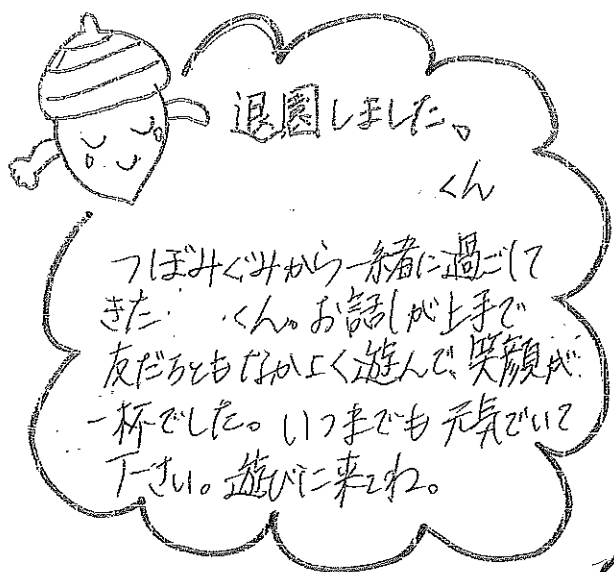 退園しました。
くん
つぼみぐみから一緒に過ごして
きた くん。お話しが上手で
友だちともなかよく遊んで、笑顔が
一杯でした。いつまでも元気でいて
下さい。遊びに来てね。